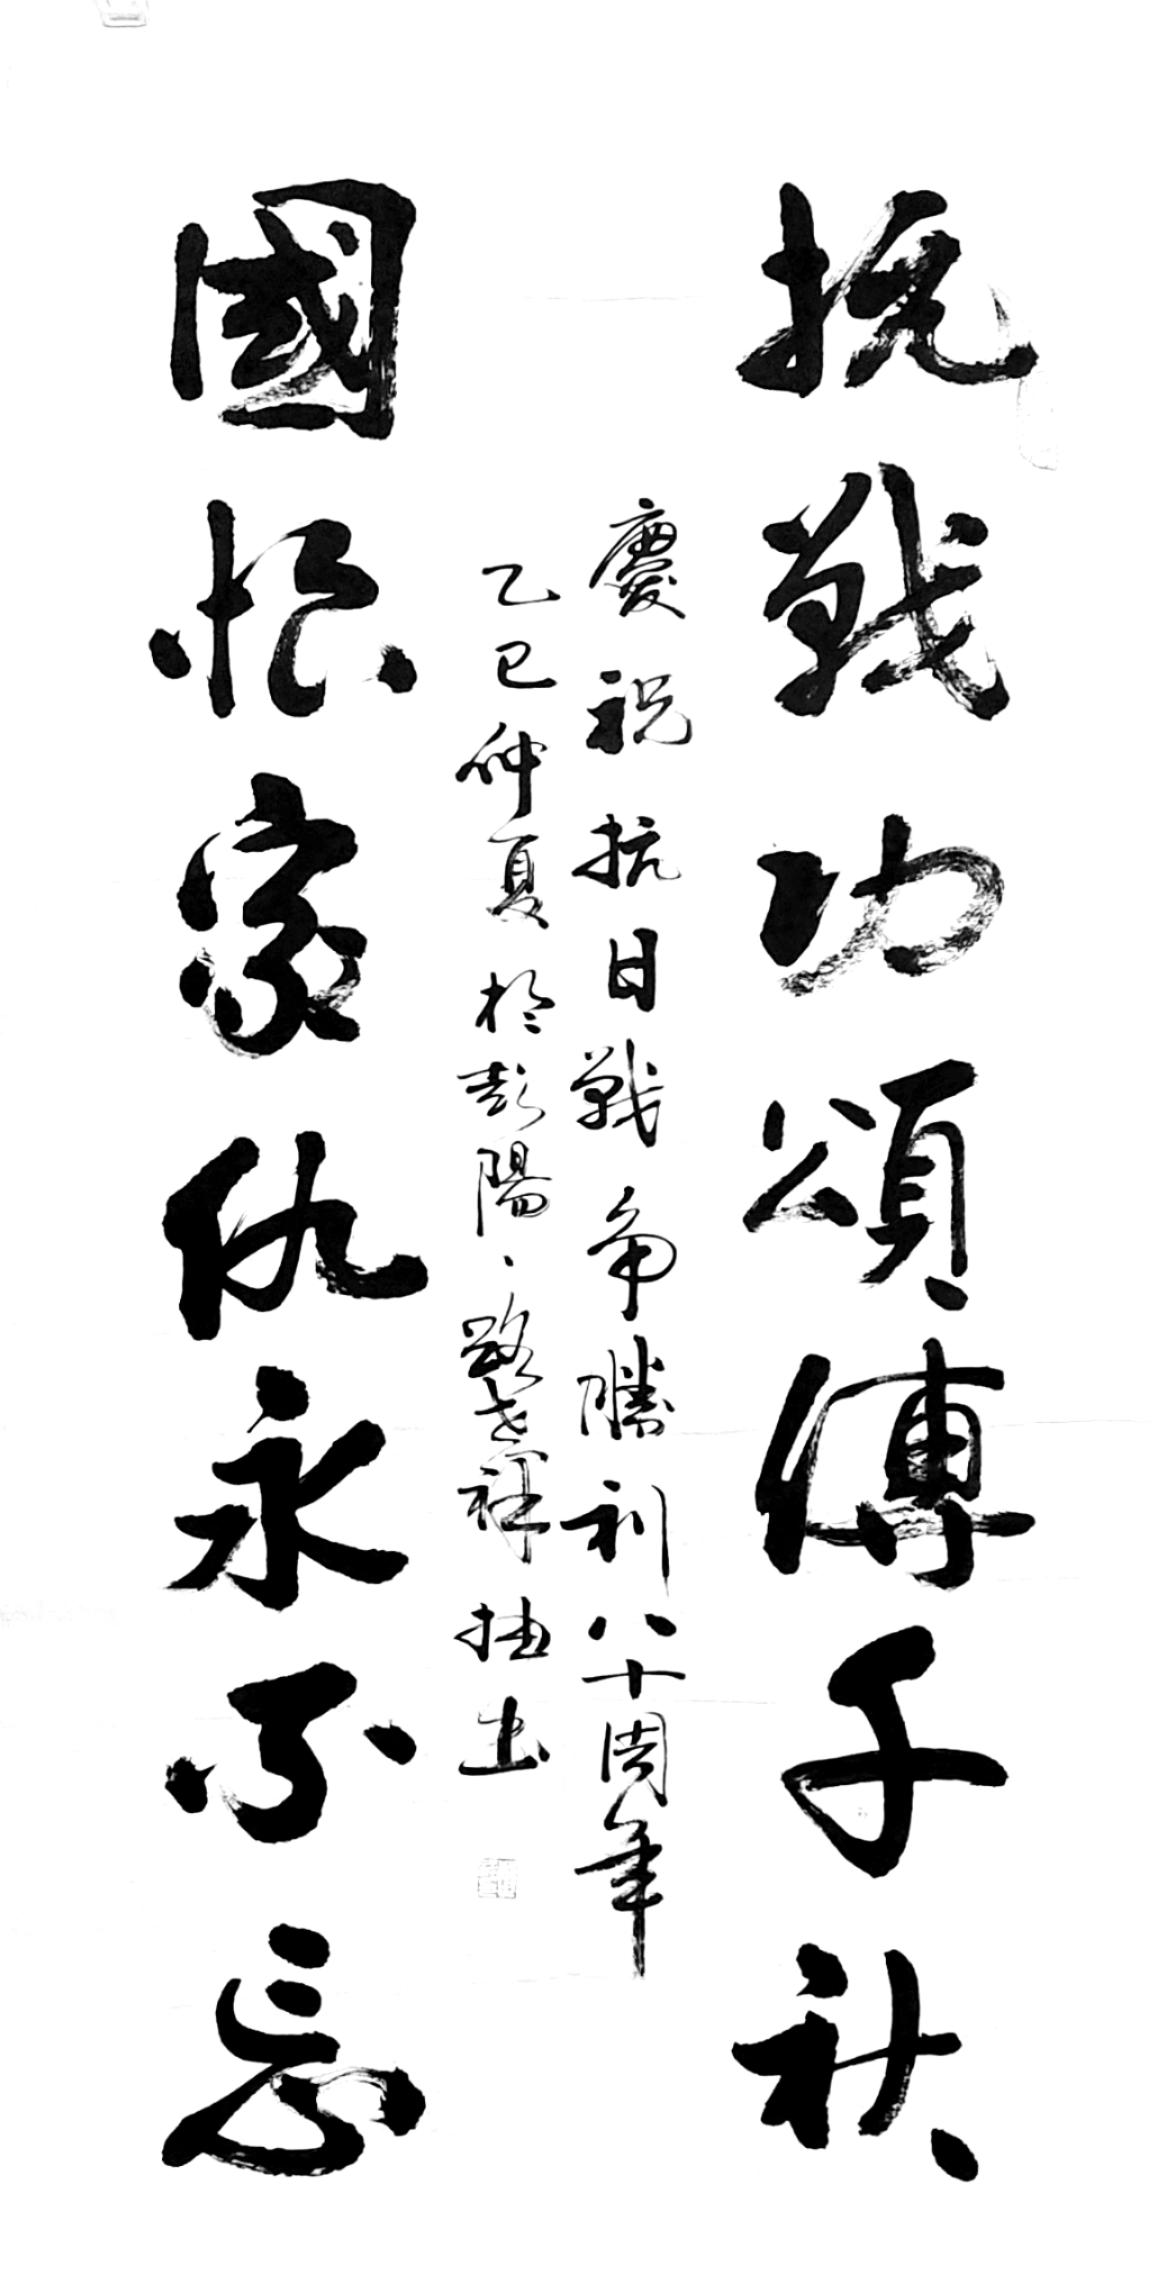 抗戰功頌傳千秋
國恨家仇永不忘
慶祝抗日戰争勝利八十周年
乙巳仲夏於彭陽、路祥拙書